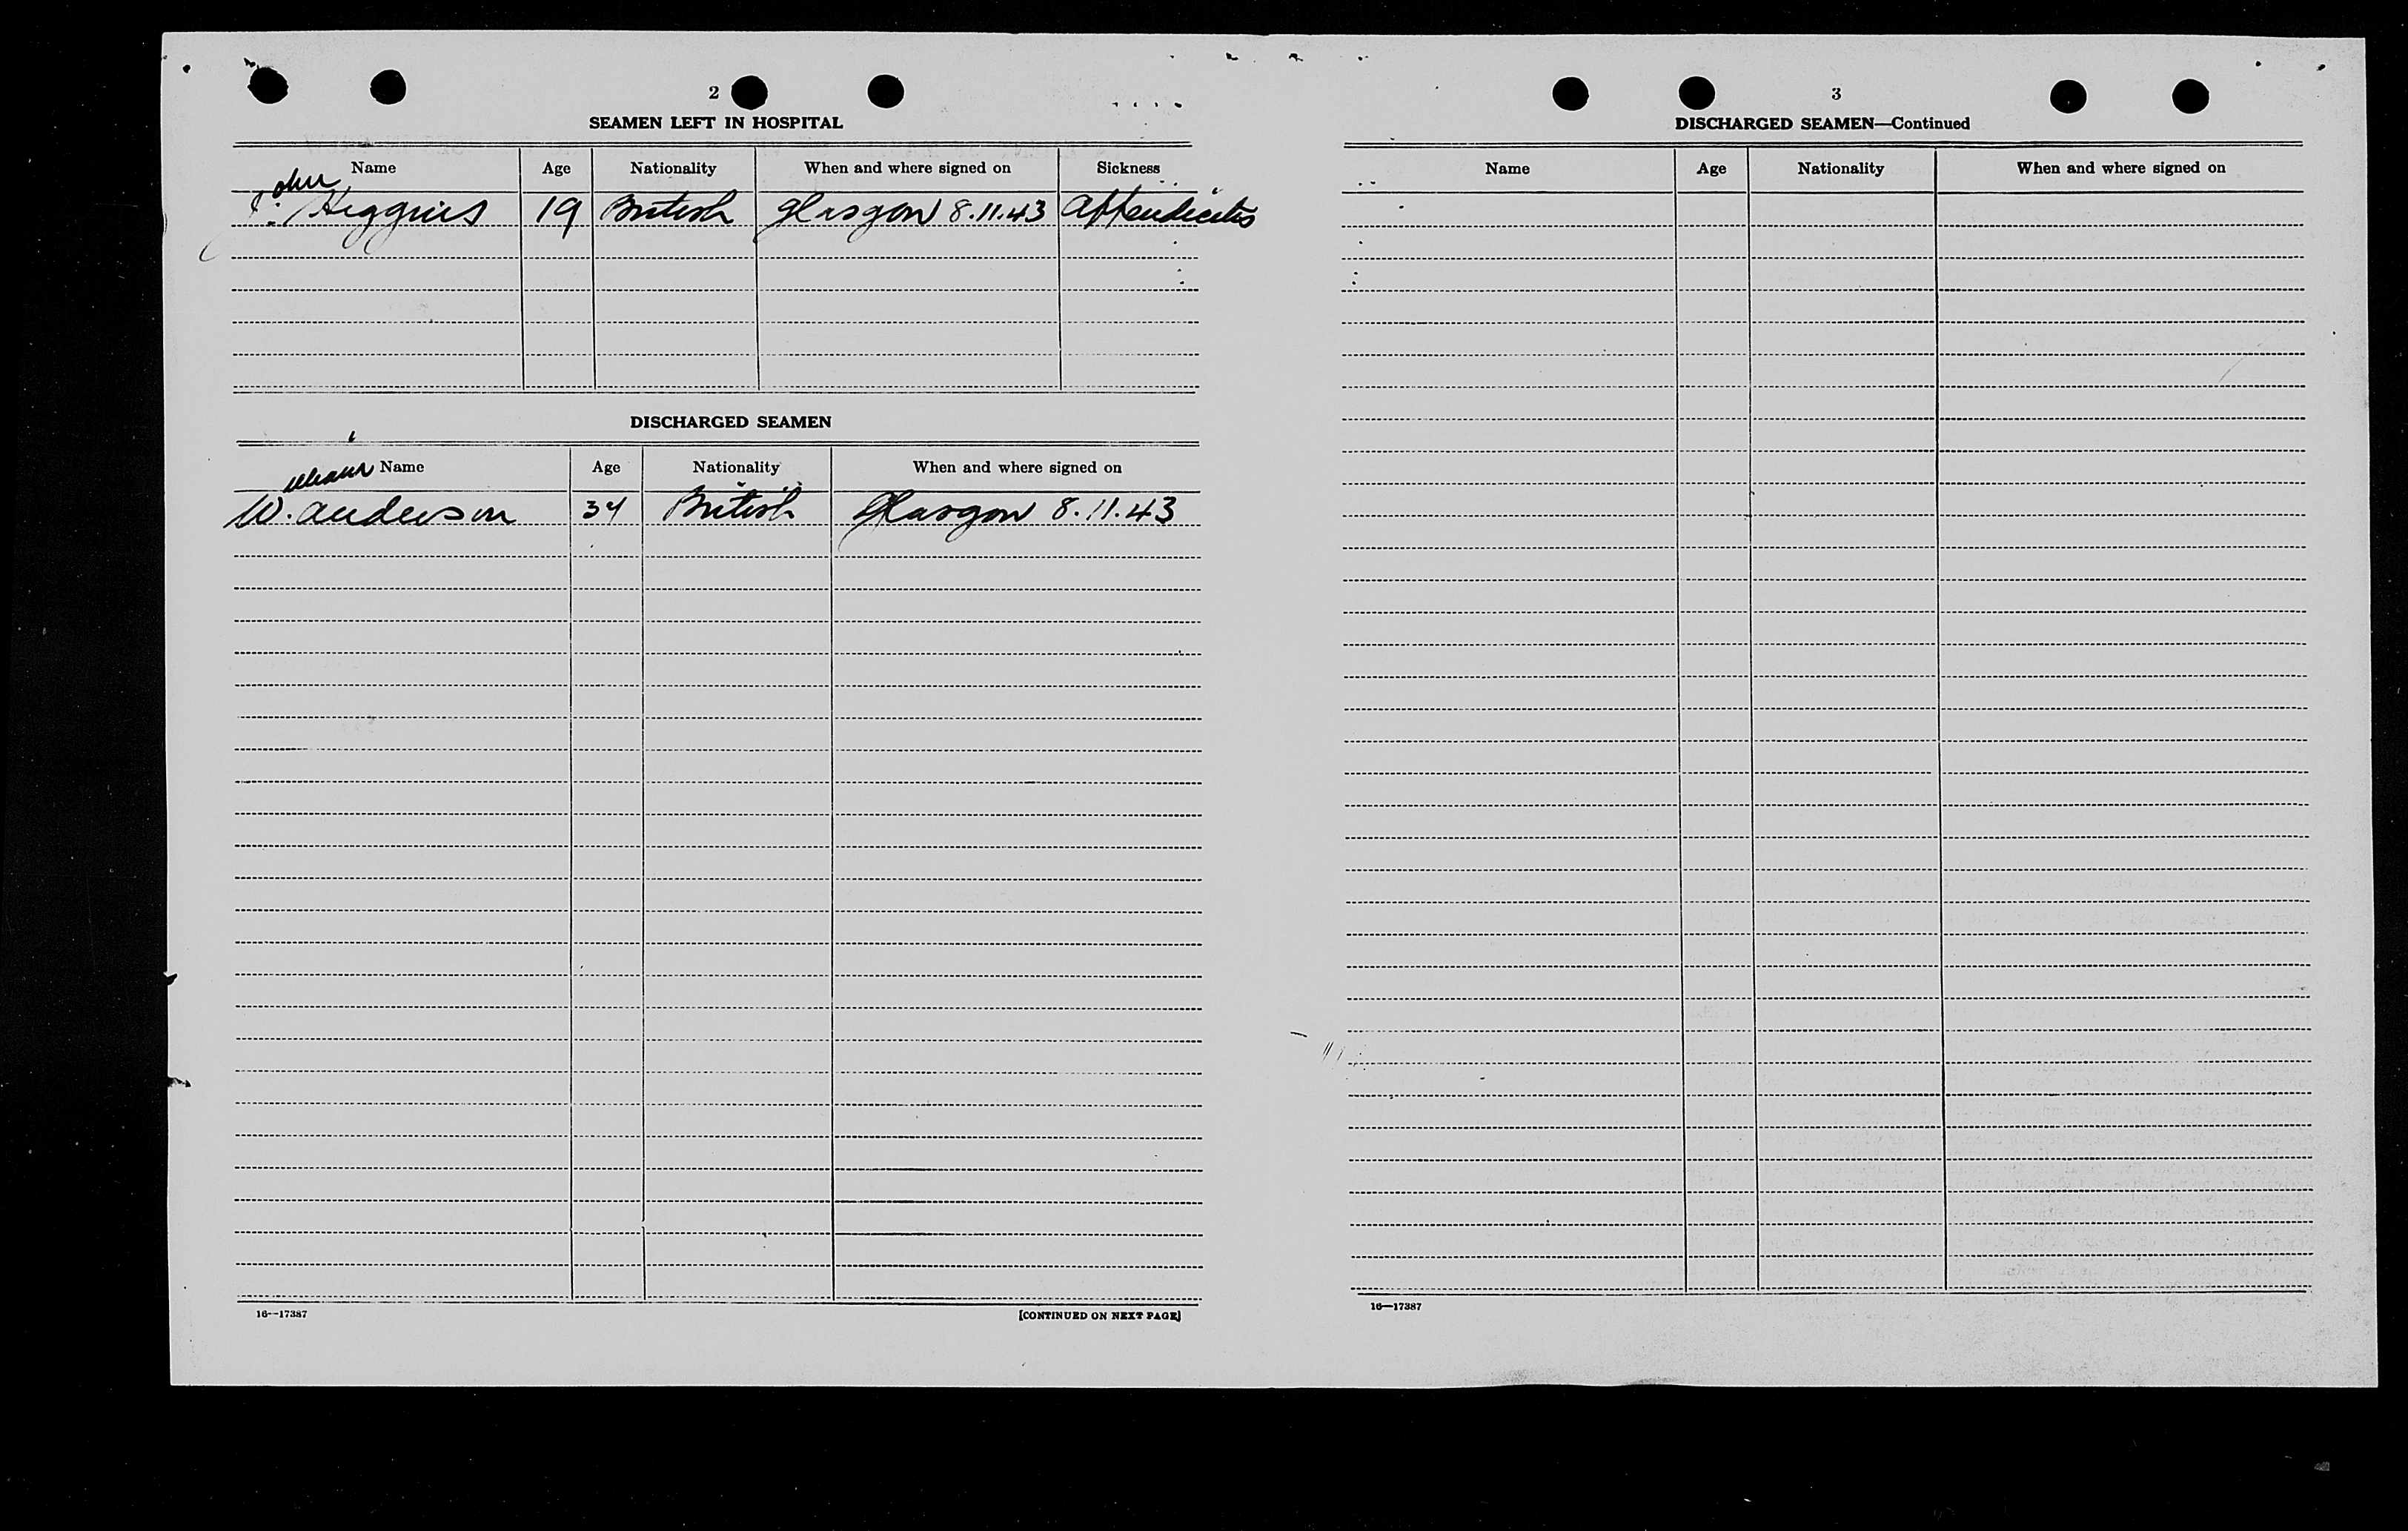 2
SEAMEN LEFT IN HOSPITAL
Name Age Nationality When and where signed on Sickness
ohn
J. Higgins 19 British Glasgow 8.11.43 Appendicitis
DISCHARGED SEAMEN
Name Age Nationality When and where signed on
illiam
W. Anderson 34 British Glasgow 8.11.43
16--17387 [CONTINUED ON NEXT PAGE]
3
DISCHARGED SEAMEN—Continued
Name Age Nationality When and where signed on
16—17387